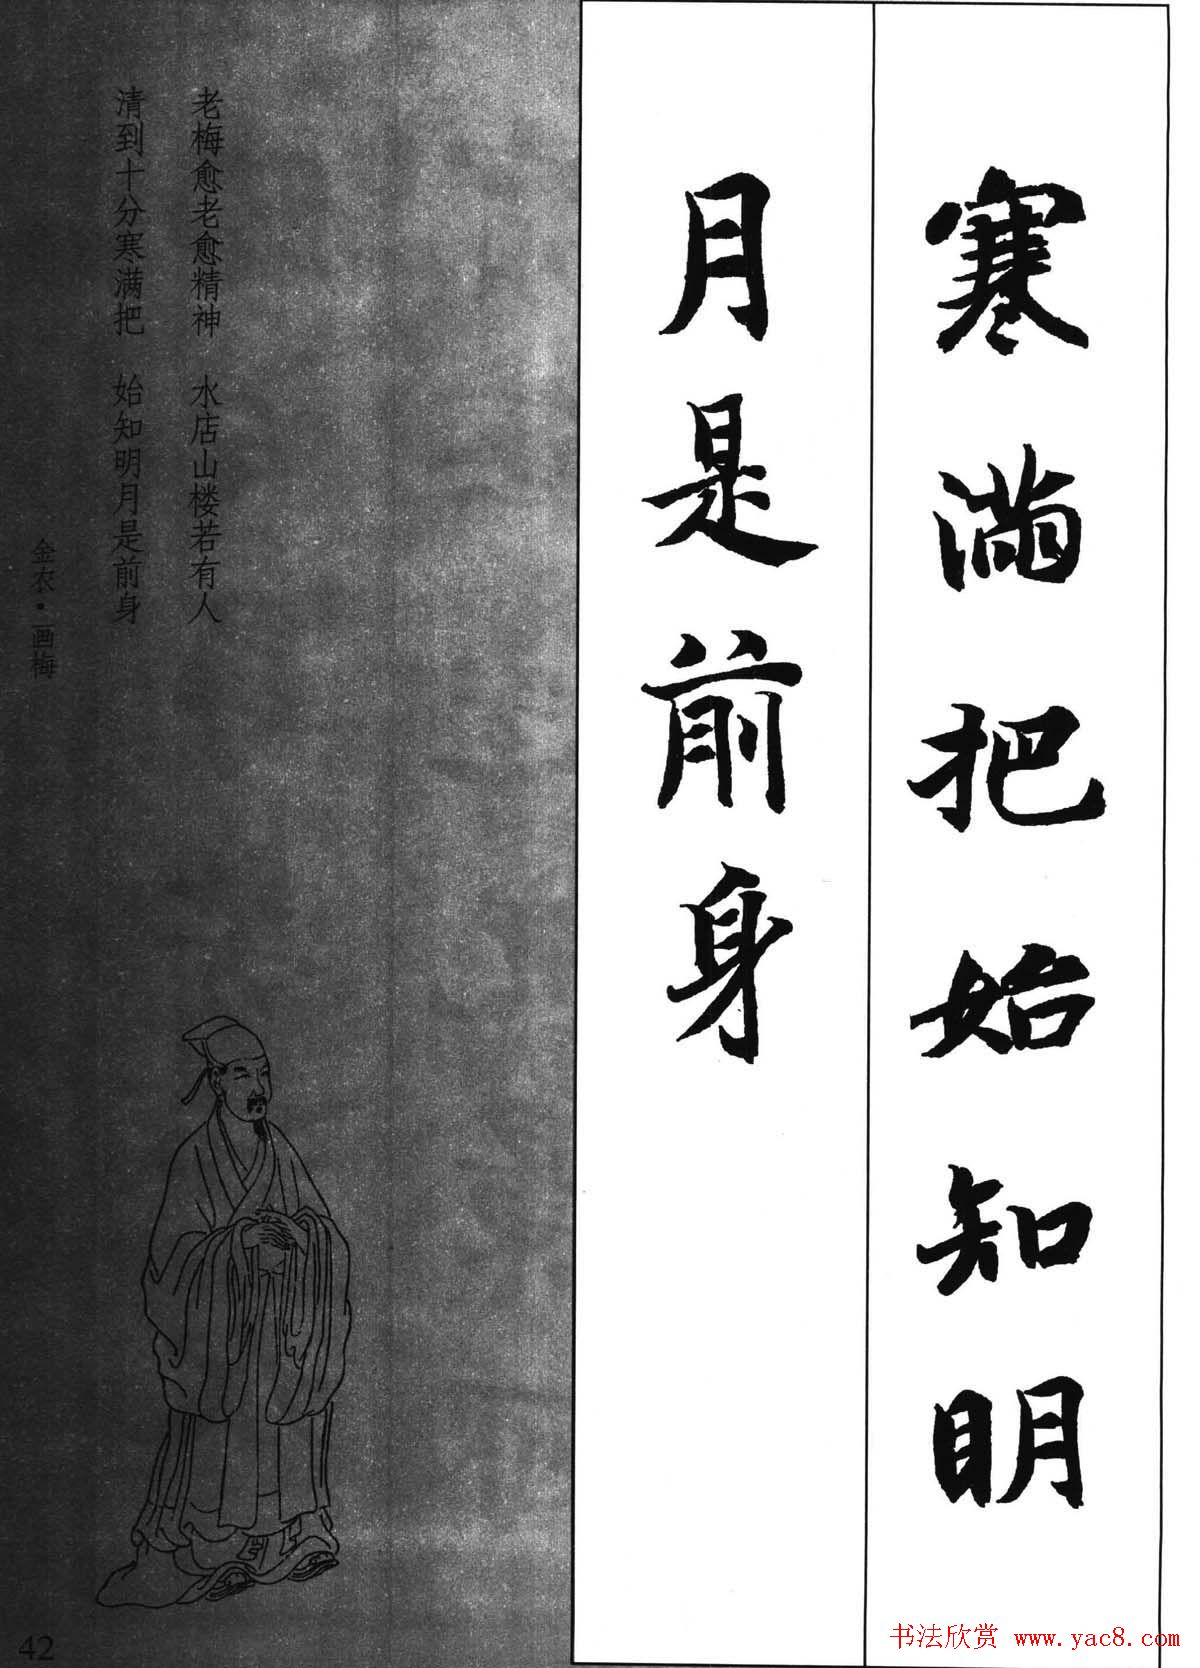 寒满把始知明
月是前身
老梅愈老愈精神 水店山楼若有人
清到十分寒满把 始知明月是前身
金农·画梅
42
书法欣赏 www.yac8.com